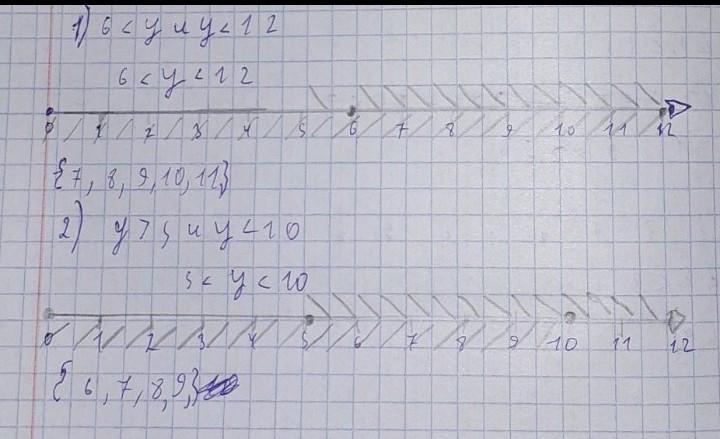 1) 6 < y и y < 12
6 < y < 12
0 1 2 3 4 5 6 7 8 9 10 11 12
{7, 8, 9, 10, 11}
2) y > 5 и y < 10
5 < y < 10
0 1 2 3 4 5 6 7 8 9 10 11 12
{6, 7, 8, 9,}